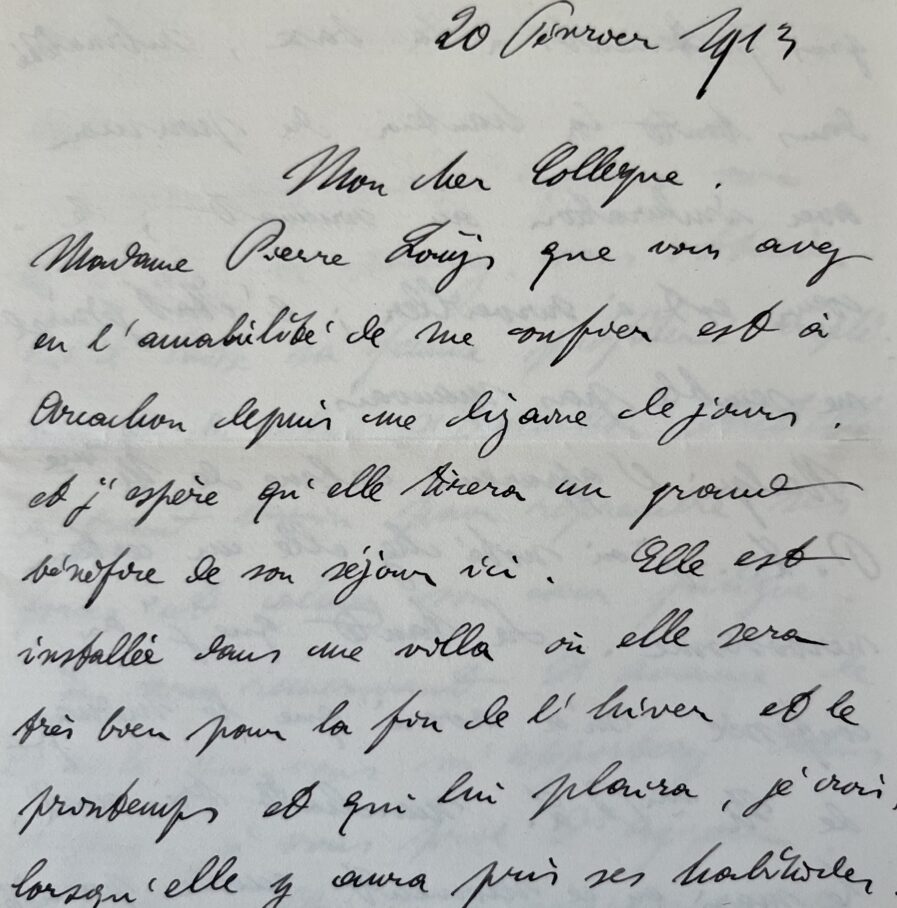 20 Février 1913
Mon cher Collègue.
Madame Pierre Louÿs que vous avez
eu l'amabilité de me confier est à
Arcachon depuis une dizaine de jours.
et j'espère qu'elle tirera un grand
bénéfice de son séjour ici. Elle est
installée dans une villa où elle sera
très bien pour la fin de l'hiver et le
printemps et qui lui plaira, je crois,
lorsqu'elle y aura pris ses habitudes.